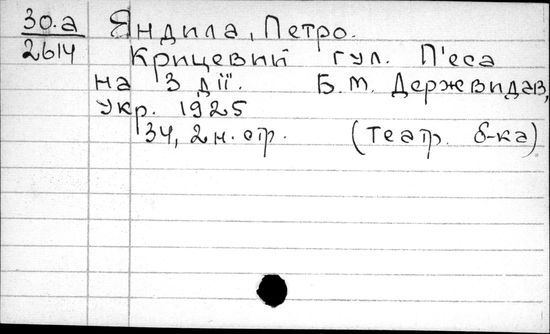 30.а
2614
Яндила, Петро.
Крицевий гул. П'єса
на 3 дії. Б.М. Держвидав,
Укр. 1925
34, 2 н. стр. (Театр. б-ка)